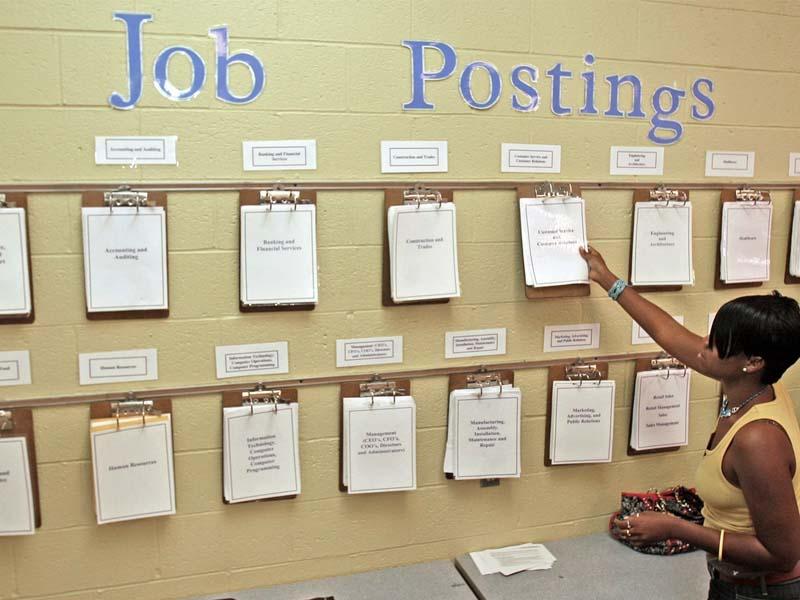 Job Postings
Accounting and Auditing
Banking and Financial
Services
Construction and Trades
Customer Service and
Customer Relations
Engineering
and
Architecture
Healthcare
Accounting and
Auditing
Banking and
Financial Services
Construction and
Trades
Customer Service
and
Customer Relations
Engineering and
Architecture
Healthcare
Food
Human Resources
Information Technology,
Computer Operations,
Computer Programming
Management (CEO's, CFO's,
COO's, Directors
and Administrators)
Manufacturing, Assembly,
Installation, Maintenance
and Repair
Marketing, Advertising
and Public Relations
Human Resources
Information
Technology,
Computer
Operations,
Computer
Programming
Management
(CEO's, CFO's,
COO's, Directors
and Administrators)
Manufacturing,
Assembly,
Installation,
Maintenance and
Repair
Marketing,
Advertising,
and Public Relations
Retail Sales
Retail Management
Sales
Sales Management